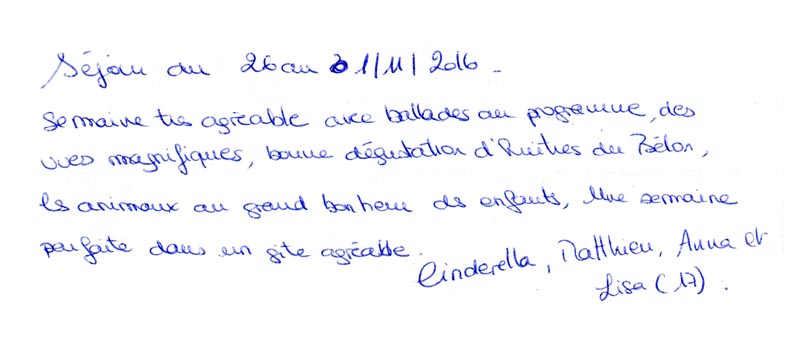 Séjour du 26 au 01/11/2016 -
Semaine très agréable avec ballades au programme, des
vues magnifiques, bonne dégustation d'huitres du Bélon,
les animaux au grand bonheur des enfants, Une semaine
parfaite dans un site agréable.
Cinderella, Matthieu, Anna et
Lisa (17).